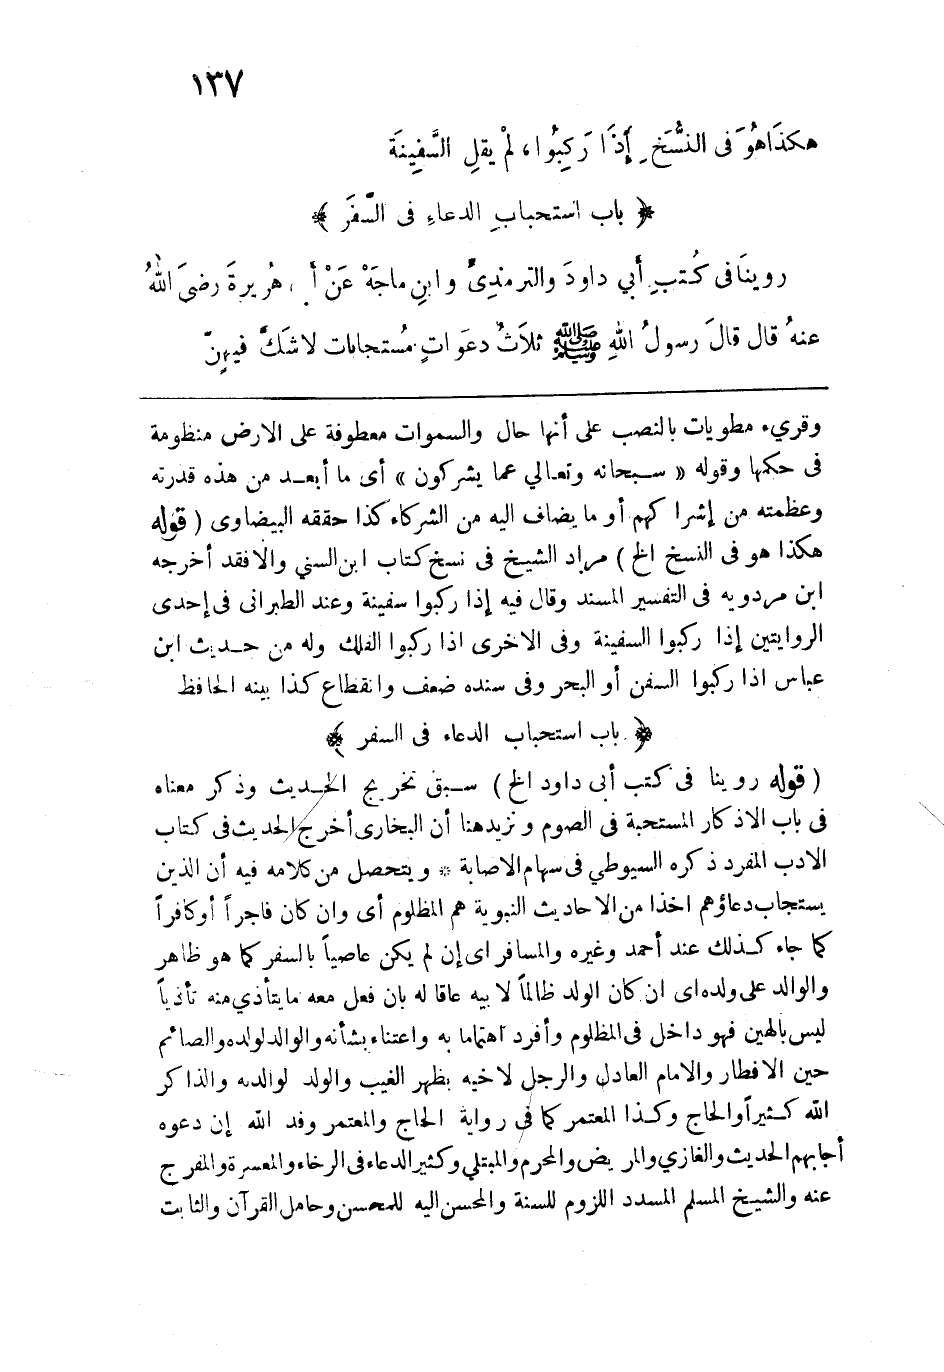 ١٣٧
هكذَا هُوَ فى النُّسَخِ إِذَا رَكِبُوا، لمْ يقلِ السَّفِينَةَ
﴿ باب استحبابِ الدعاءِ فى السَّفَرَ ﴾
روينَا فى كُتبِ أبي داودَ والترمذِىِّ وابنِ ماجَهْ عَنْ أبى هُريرةَ رضىَ اللهُ
عنهُ قال قالَ رسولُ اللهِ ﷺ ثلاَثُ دعَوَاتٍ مُستجابات لا شَكَّ فيهِنّ
وقريء مطويات بالنصب على أنها حال والسموات معطوفة على الارض منظومة
فى حكمها وقوله « سبحانه وتعالي عما يشركون » أى ما أبعد من هذه قدرته
وعظمته من إشراكهم أو ما يضاف اليه من الشركاء كذا حققه البيضاوى ( قوله
هكذا هو فى النسخ الخ ) مراد الشيخ فى نسخ كتاب ابن السني والافقد أخرجه
ابن مردويه فى التفسير المسند وقال فيه إذا ركبوا سفينة وعند الطبرانى فى إحدى
الروايتين إذا ركبوا السفينة وفى الاخرى اذا ركبوا الفلك وله من حديث ابن
عباس اذا ركبوا السفن أو البحر وفى سنده ضعف وانقطاع كذا بينه الحافظ
﴿ باب استحباب الدعاء فى السفر ﴾
( قوله روينا فى كتب أبى داود الخ ) سبق تخريج الحديث وذكر معناه
فى باب الاذكار المستحبة فى الصوم ونزيدهنا أن البخارى أخرج الحديث فى كتاب
الادب المفرد ذكره السيوطي فى سهام الاصابة * ويتحصل من كلامه فيه أن الذين
يستجاب دعاؤهم اخذا من الاحاديث النبوية هم المظلوم أى وان كان فاجراً أو كافراً
كما جاء كذلك عند أحمد وغيره والمسافر اى إن لم يكن عاصياً بالسفر كما هو ظاهر
والوالد على ولده اى ان كان الولد ظالماً لابيه عاقا له بان فعل معه ما يتأذي منه تأذياً
ليس بالهين فهو داخل فى المظلوم وأفرد اهتماما به واعتناء بشأنه والوالد لولده والصائم
حين الافطار والامام العادل والرجل لاخيه بظهر الغيب والولد لوالده والذاكر
الله كثيراً والحاج وكذا المعتمر كما في رواية الحاج والمعتمر وفد الله إن دعوه
أجابهم الحديث والغازي والمريض والمحرم والمبتلي وكثير الدعاء فى الرخاء والمعسرة والمفرج
عنه والشيخ المسلم المسدد اللزوم للسنة والمحسن اليه للمحسن وحامل القرآن والثابت